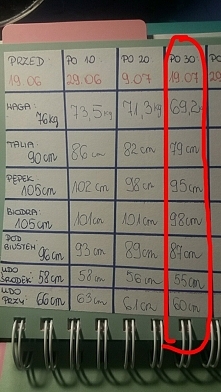 PRZED: PO 10 PO 20 PO 30
19.06 29.06 9.07 19.07
WAGA: 76kg 73,5kg 71,3kg 69,2kg
TALIA: 90cm 86cm 82cm 79cm
PĘPEK: 105cm 102cm 98cm 95cm
BIODRA: 105cm 101cm 101cm 98cm
POD BIUSTEM: 96cm 93cm 89cm 87cm
UDO ŚRODEK: 58cm 58cm 56cm 55cm
UDO PRZY: 66cm 63cm 61cm 60cm